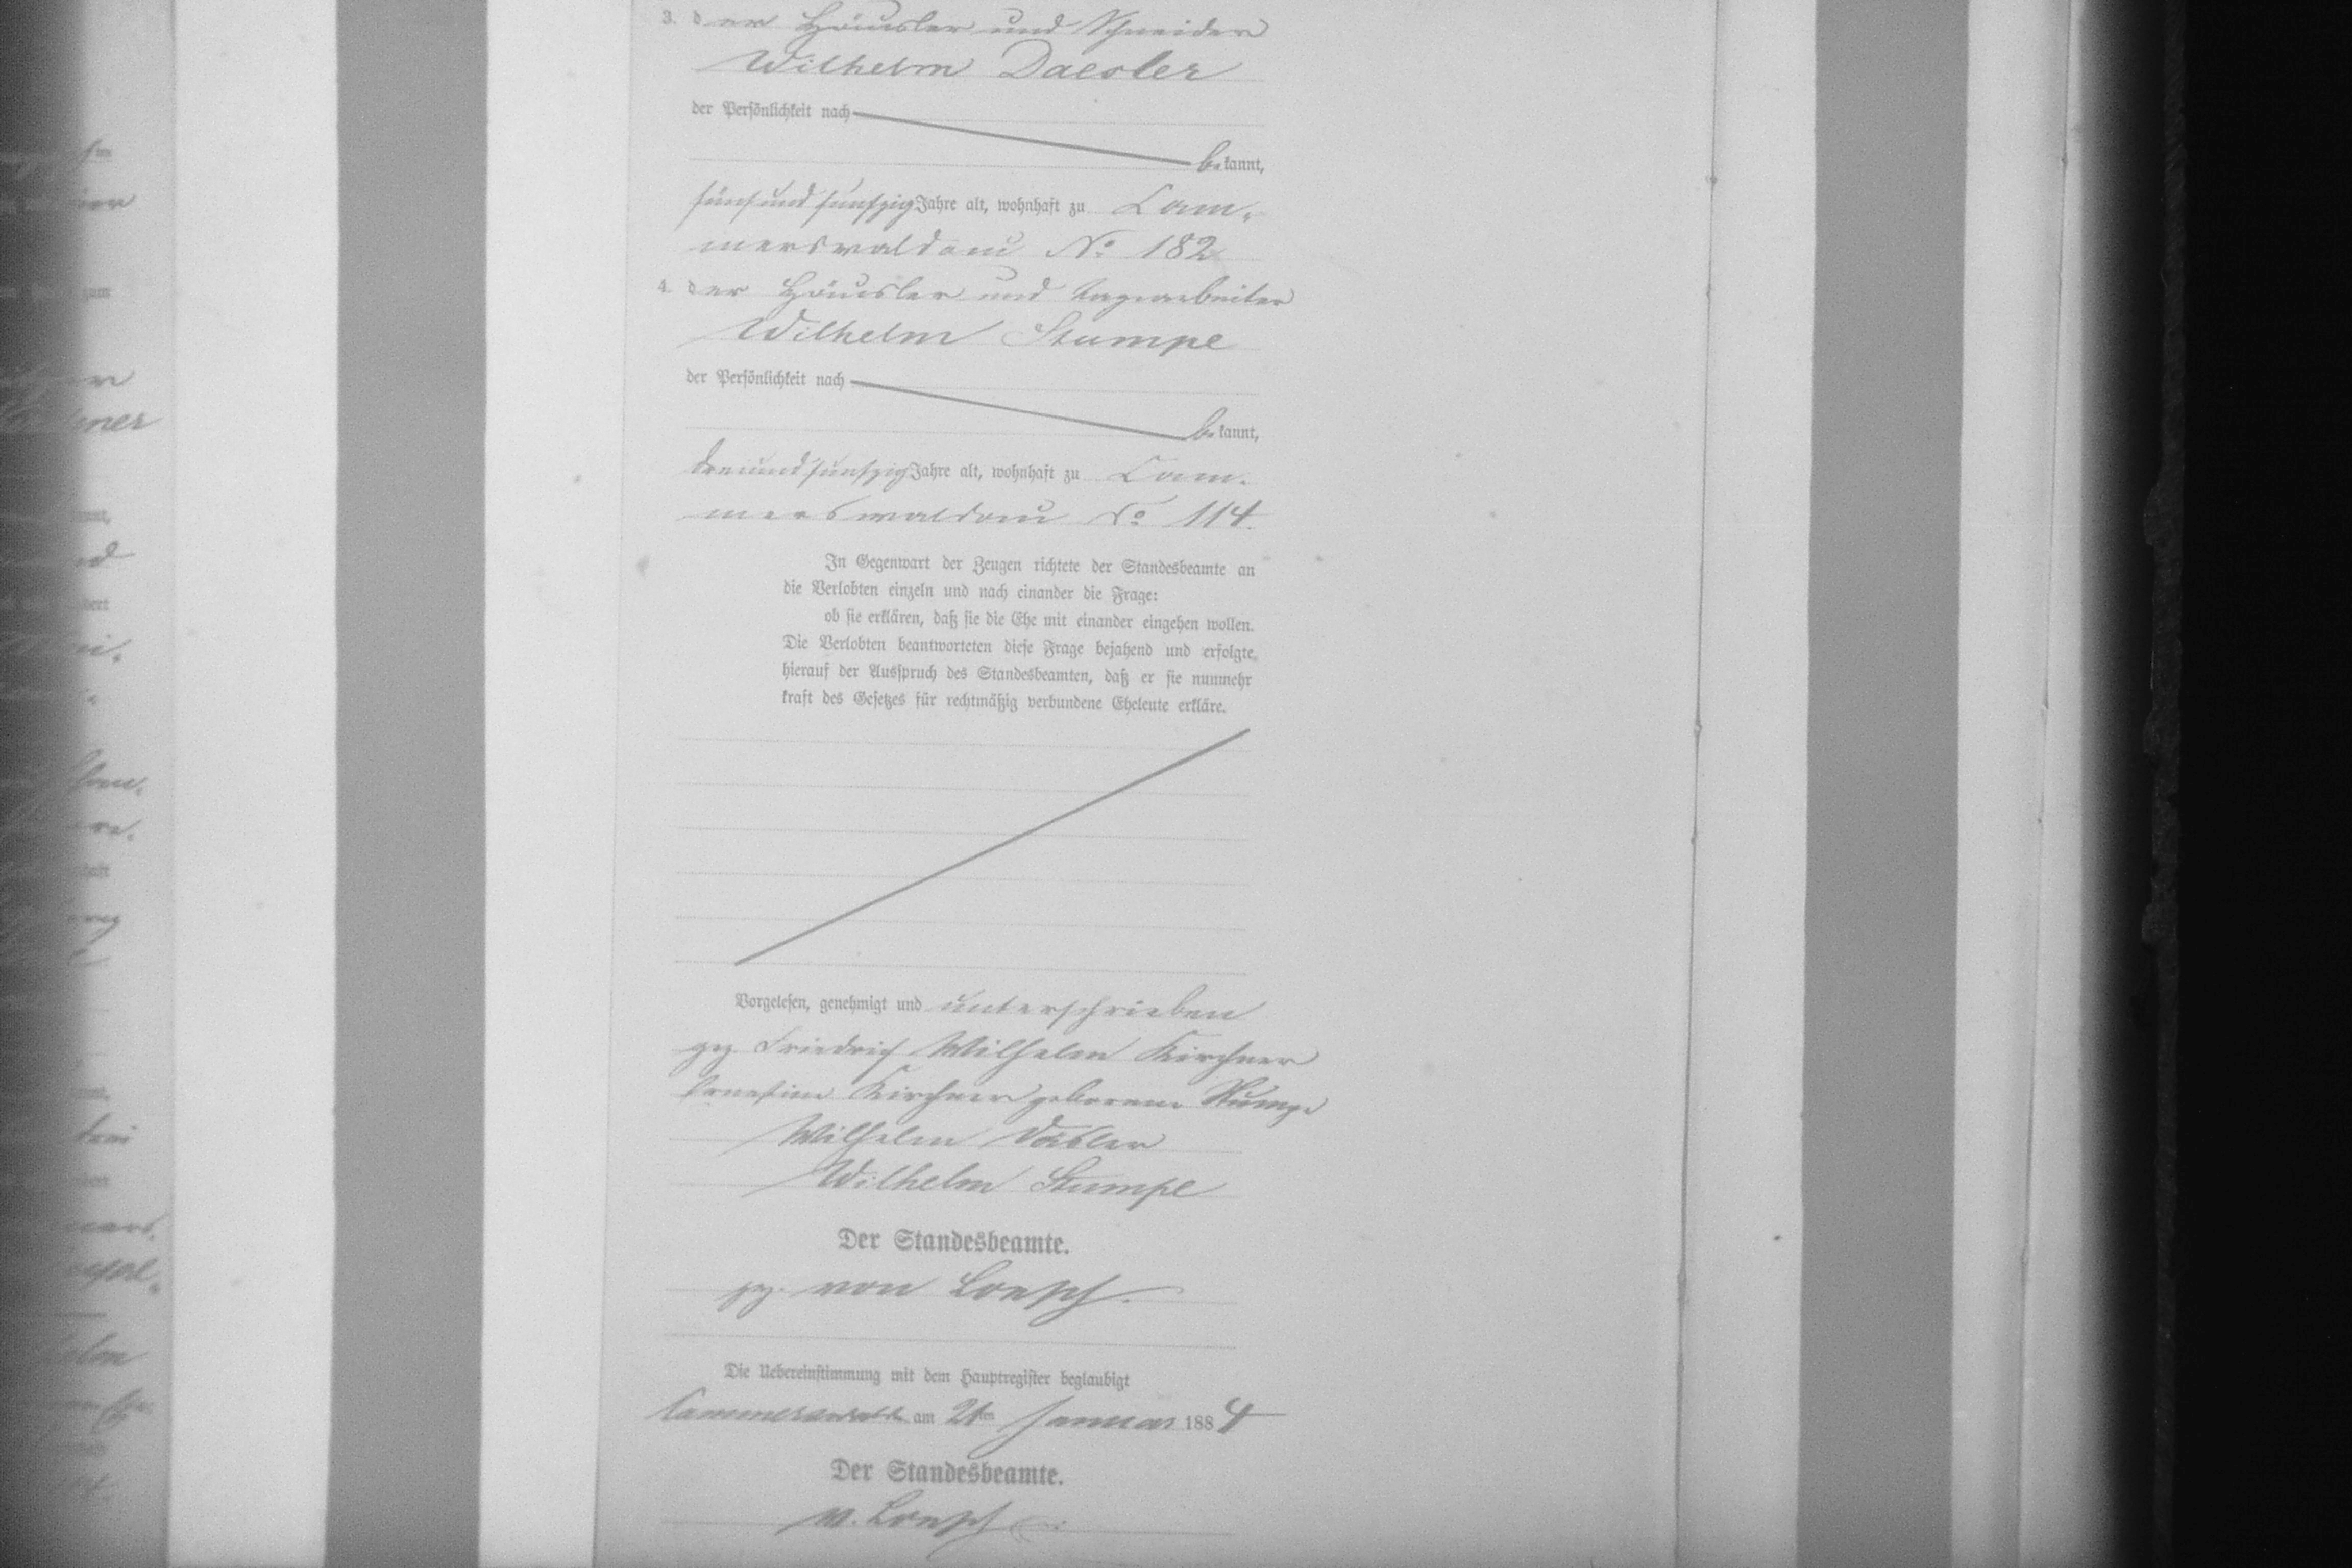 3. der Häusler und Schneider
Wilhelm Daesler
der Persönlichkeit nach
bekannt,
fünfundfünfzig Jahre alt, wohnhaft zu Cam-
merswaldau No 182
4. der Häusler und Tagearbeiter
Wilhelm Stumpe
der Persönlichkeit nach
bekannt,
dreiundfünfzig Jahre alt, wohnhaft zu Cam-
merswaldau No 114.
In Gegenwart der Zeugen richtete der Standesbeamte an
die Verlobten einzeln und nach einander die Frage:
ob sie erklären, daß sie die Ehe mit einander eingehen wollen.
Die Verlobten beantworteten diese Frage bejahend und erfolgte
hierauf der Ausspruch des Standesbeamten, daß er sie nunmehr
kraft des Gesetzes für rechtmäßig verbundene Eheleute erkläre.
Vorgelesen, genehmigt und unterschrieben
gez. Friedrich Wilhelm Kirchner
Ernestine Kirchner geborene Stumpe
Wilhelm Däsler
Wilhelm Stumpe
Der Standesbeamte.
gez. von Loesch.
Die Uebereinstimmung mit dem Hauptregister beglaubigt
am 21ten Januar 1884
Der Standesbeamte.
v. Loesch